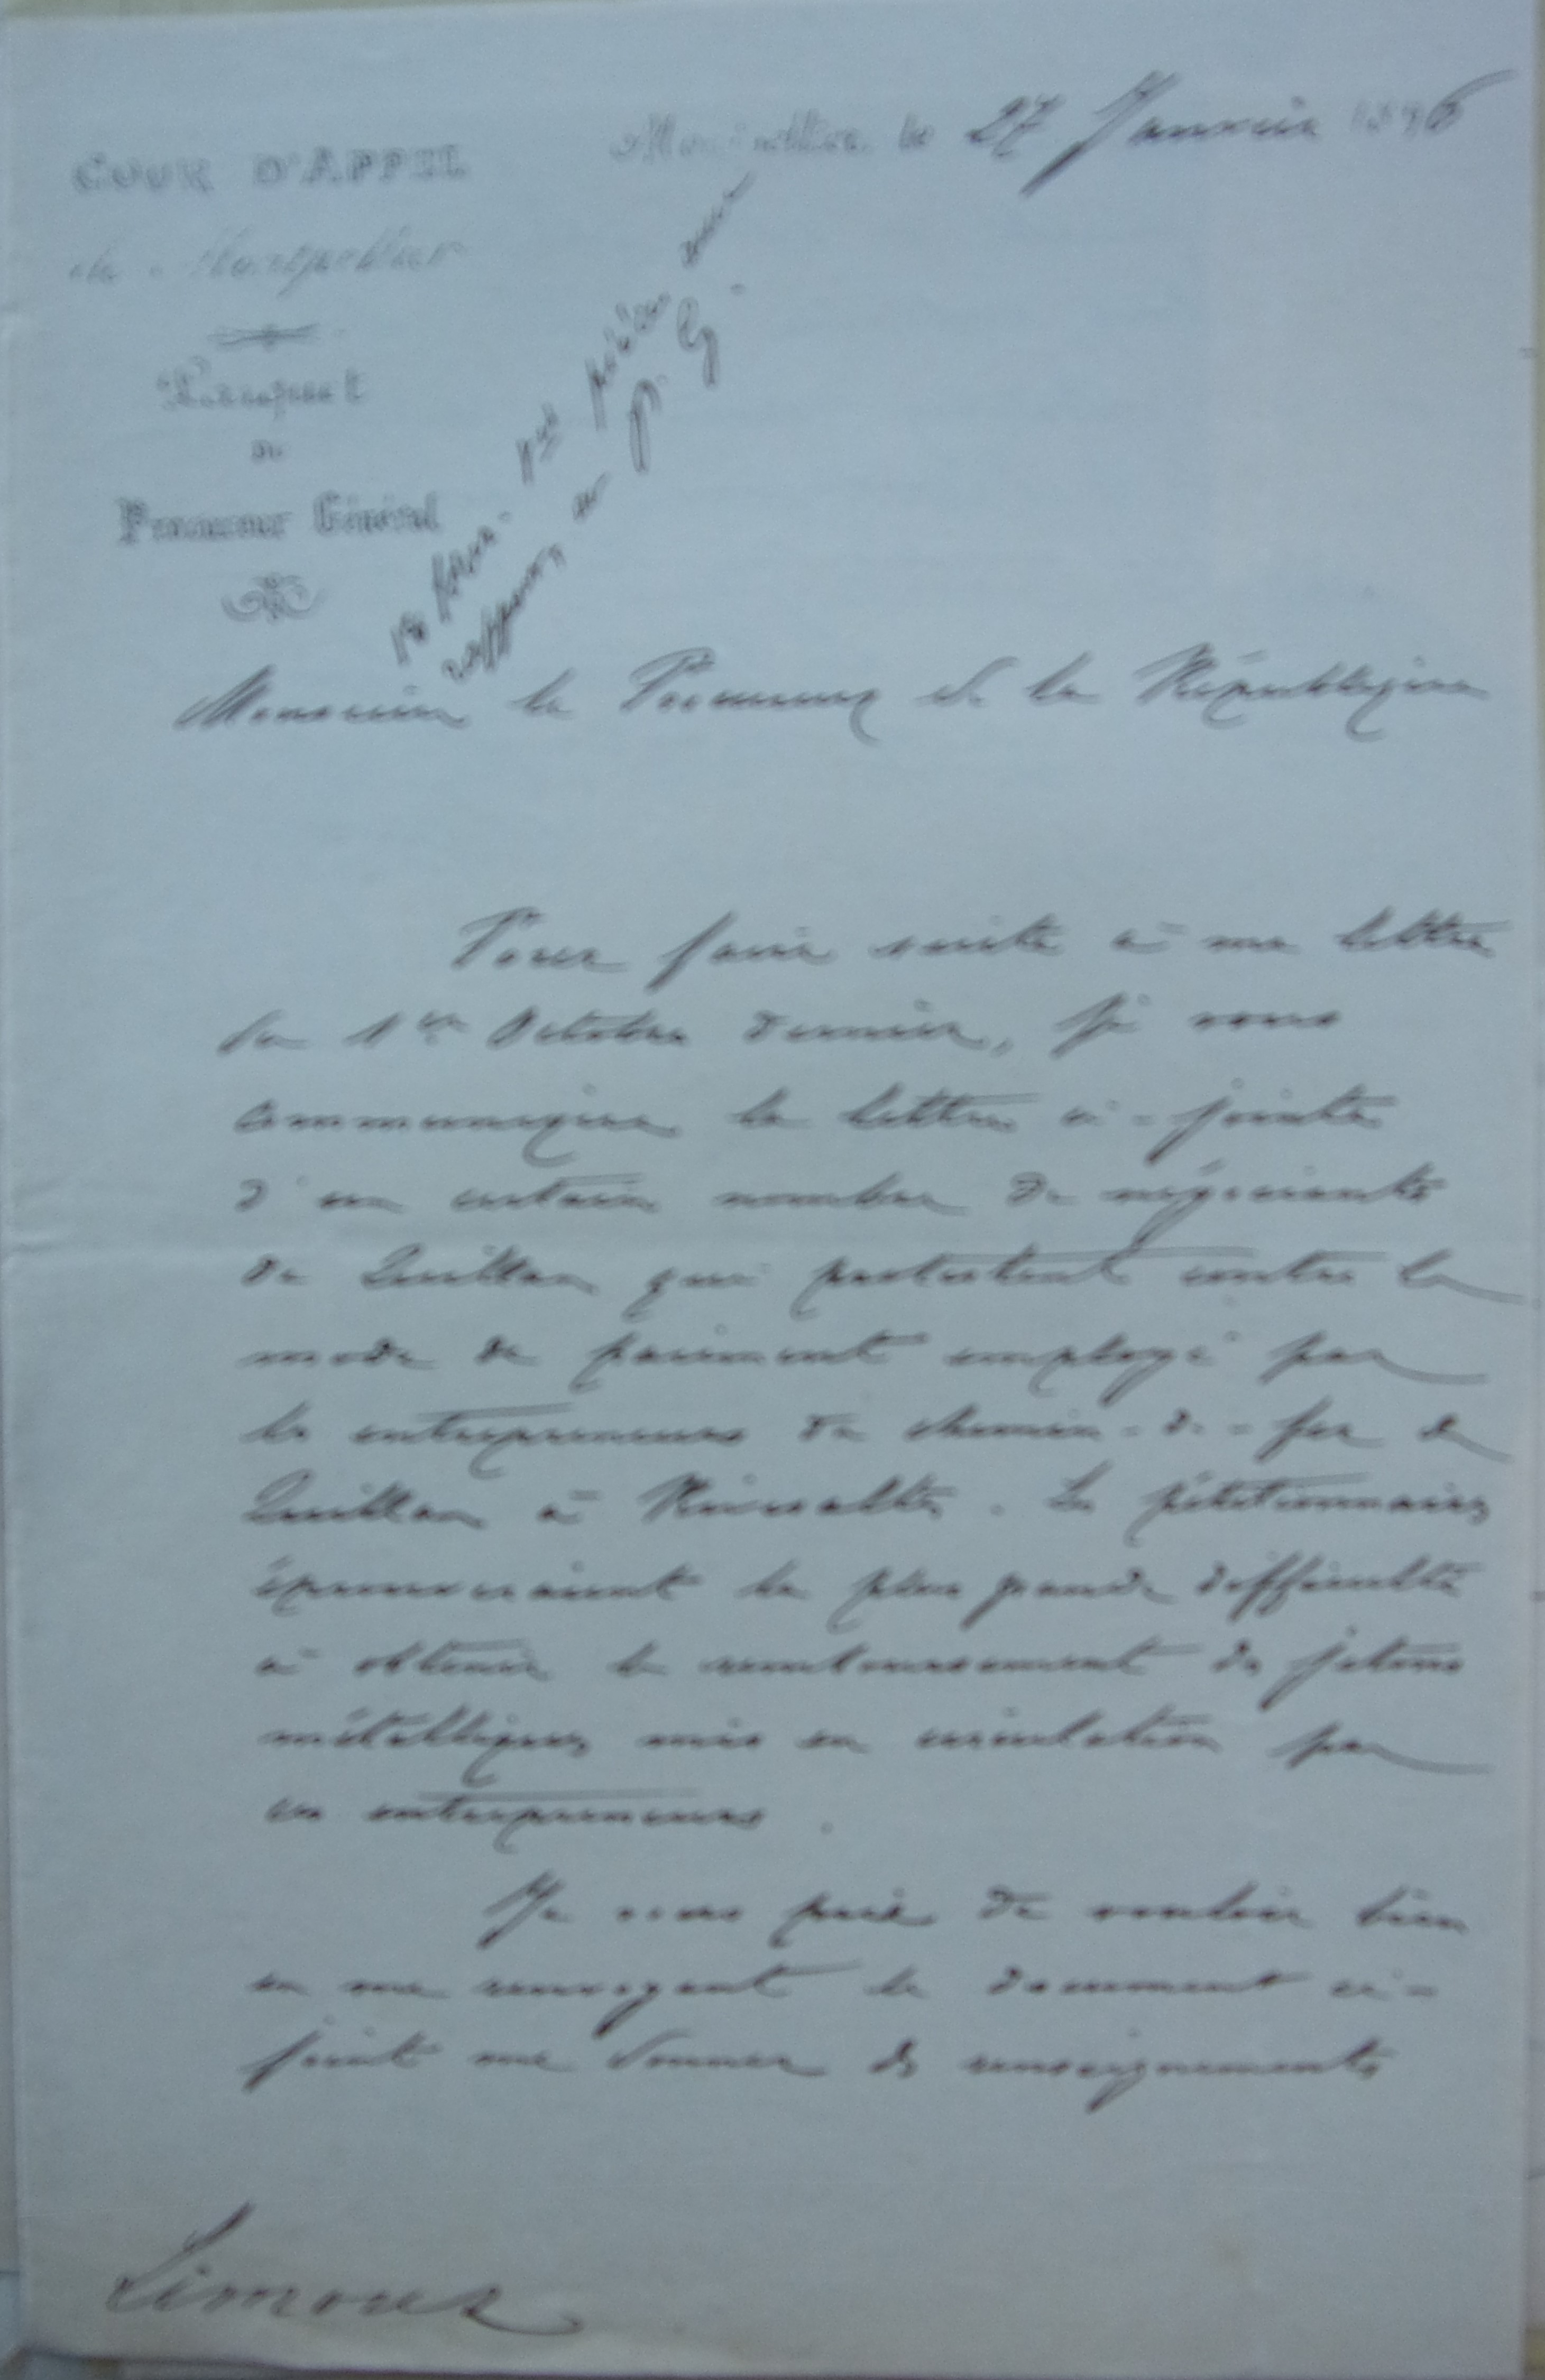 COUR D'APPEL
de Montpellier
Parquet
du
Procureur Général
Montpellier, le 27 Janvier 1896
rapport au P. G.
Monsieur le Procureur de la République
Pour faire suite à ma lettre
du 1er Octobre dernier, je vous
communique la lettre ci-jointe
d'un certain nombre de négociants
de Quillan qui protestent contre le
mode de paiement employé par
les entrepreneurs du chemin-de-fer de
Quillan à Rivesaltes. Les pétitionnaires
éprouveraient la plus grande difficulté
à obtenir le remboursement des jetons
métalliques mis en circulation par
ces entrepreneurs.
Je vous prie de vouloir bien
en me renvoyant le document ci-
joint me donner des renseignements
Limoux